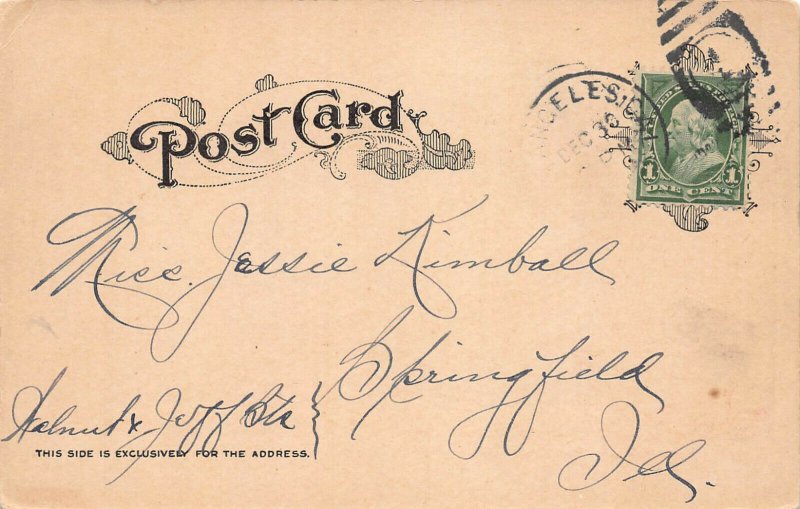 Post Card
NGELES, C
DEC 30
ONE CENT
1 1
Miss. Jessie Kimball
Springfield
Walnut & Jeff Sts
Ill.
THIS SIDE IS EXCLUSIVELY FOR THE ADDRESS.